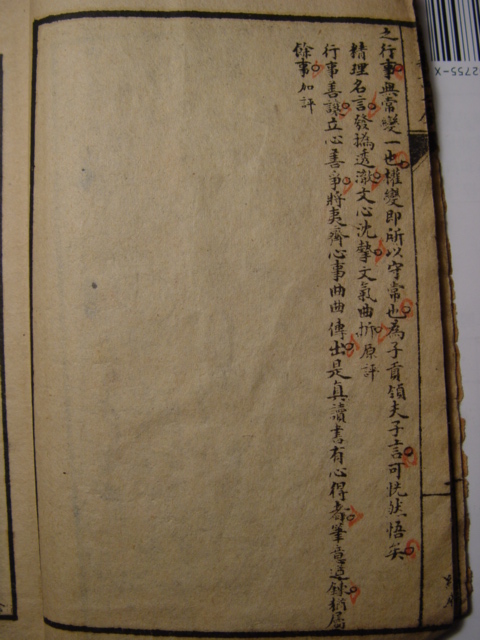 之行事無常變一也權變即所以守常也為子貢領夫子言可恍然悟矣
精理名言發撝透澈文心沈摯文氣曲折原評
行事善讓立心善爭將夷齊心事曲曲傳出是真讀書有心得者筆意遒鍊猶屬
餘事加評
2755-X